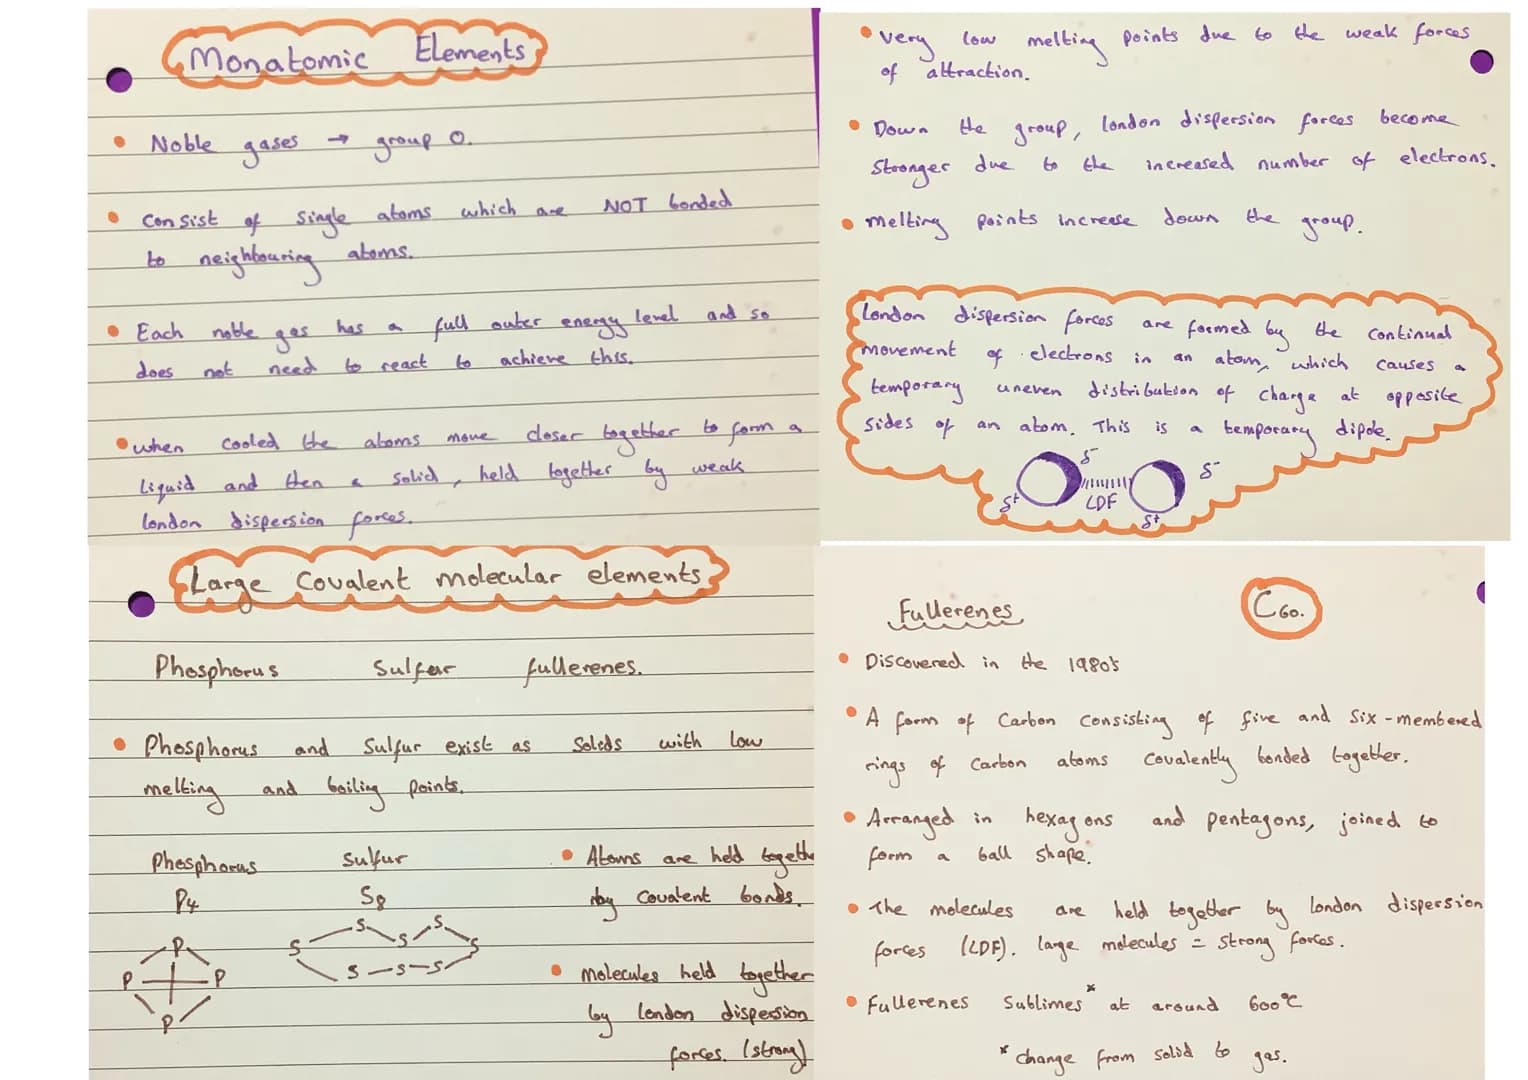 Monatomic Elements
• Noble gases → group 0.
• Consist of single atoms which are NOT bonded
to neighbouring atoms.
• Each noble gas has a full outer energy level and so
does not need to react to achieve this.
• when cooled the atoms move closer together to form a
liquid and then a solid, held together by weak
london dispersion forces.
• very low melting points due to the weak forces
of attraction.
• Down the group, london dispersion forces become
stronger due to the increased number of electrons.
• melting points increase down the group.
London dispersion forces are formed by the continual
movement of electrons in an atom, which causes a
temporary uneven distribution of charge at opposite
sides of an atom. This is a temporary dipole.
δ- δ-
LDF
δ+ δ+
Large Covalent molecular elements
Phosphorus Sulfur fullerenes.
• Phosphorus and Sulfur exist as Solids with low
melting and boiling points.
Phosphorus Sulfur
P4 S8
P P P P
S S S S S S S S
• Atoms are held togethe
by covalent bonds.
• molecules held together
by london dispersion
forces. (strong)
Fullerenes C60.
• Discovered in the 1980's
• A form of Carbon consisting of five and six-membered
rings of carbon atoms covalently bonded together.
• Arranged in hexagons and pentagons, joined to
form a ball shape.
• The molecules are held together by london dispersion
forces (LDF). large molecules = strong forces.
• Fullerenes Sublimes* at around 600°C
* change from solid to gas.